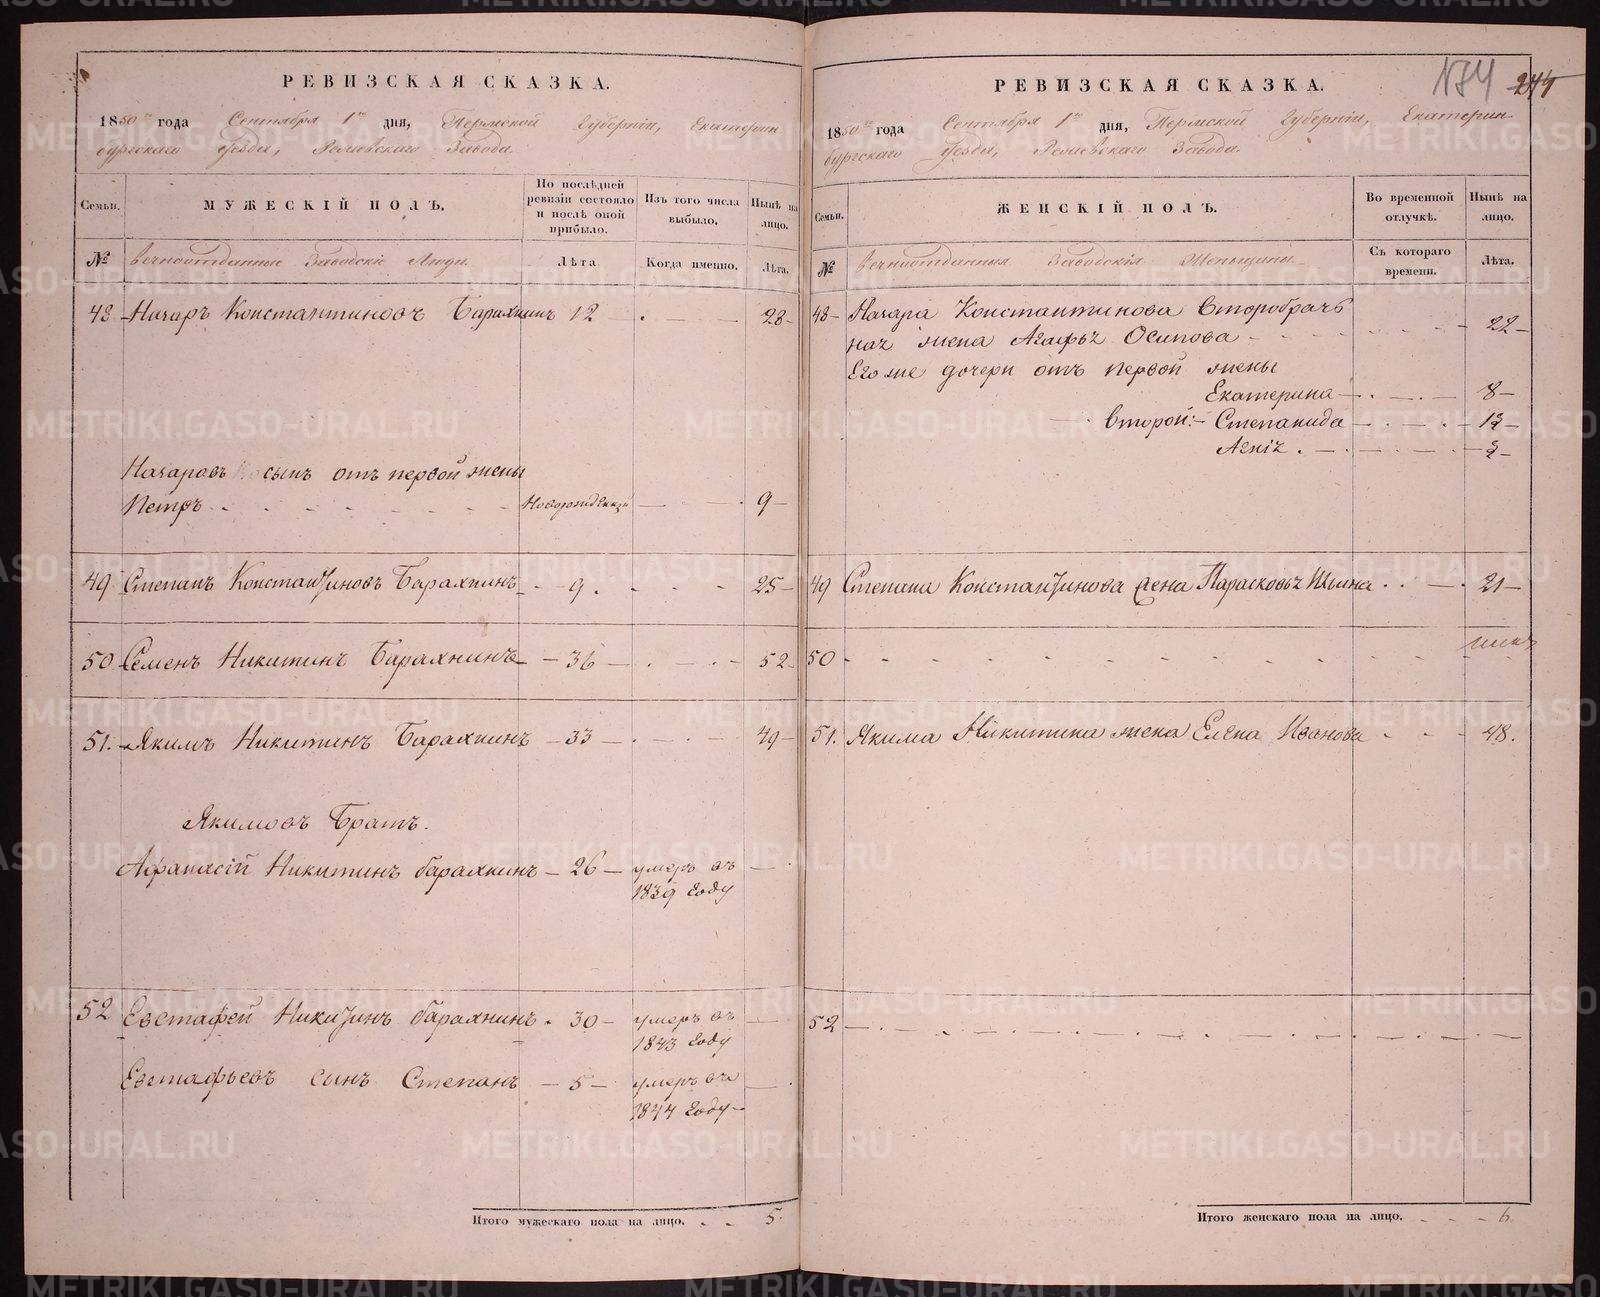 РЕВИЗСКАЯ СКАЗКА.
1850го года Сентября 1го дня, Пермской Губерніи, Екатерин
бургскаго Уезда, Завода.
Семьи.
МУЖЕСКІЙ ПОЛЪ.
По послѣдней ревизіи состояло и послѣ оной прибыло.
Изъ того числа выбыло.
Нынѣ на лицо.
№
Вечноотданные Заводскіе Люди.
Лѣта
Когда именно.
Лѣта.
48 Константиновъ Барахнинъ 12 - 28
сынъ отъ первой жены
Петръ - Новорожденный - 9
49 Степанъ Константиновъ Барахнинъ - 9. - 25
50 Семенъ Никитинъ Барахнинъ - 36 - 52
51. Якимъ Никитинъ Барахнинъ - 33 - 49
Якимовъ Братъ.
Афанасій Никитинъ барахнинъ - 26 - умеръ въ
1839 году
52 Евстафей Никитинъ барахнинъ - 30 - умеръ въ
1843 году
Евстафьевъ сынъ Степанъ - 5 - умеръ въ
1844 году
Итого мужескаго пола на лицо. - - 5.
174 244
РЕВИЗСКАЯ СКАЗКА.
1850го года Сентября 1го дня, Пермской Губерніи, Екатерин
бургскаго Уезда, Завода.
Семьи.
ЖЕНСКІЙ ПОЛЪ.
Во временной отлучкѣ.
Нынѣ на лицо.
№
Вечноотданныя Заводскія Женьщины
Съ котораго времени.
Лѣта.
48 Константинова Второбрач
ная жена Агафья Осипова - 22
Его же дочери отъ первой жены
Екатерина - 8
второй: Степанида
Агнія
49 Степана Константинова жена Парасковья Ильина - 21
50
51. Якима Никитина жена Елена Иванова - 48.
52
Итого женскаго пола на лицо. - - - 6
METRIKI.GASO-URAL.RU